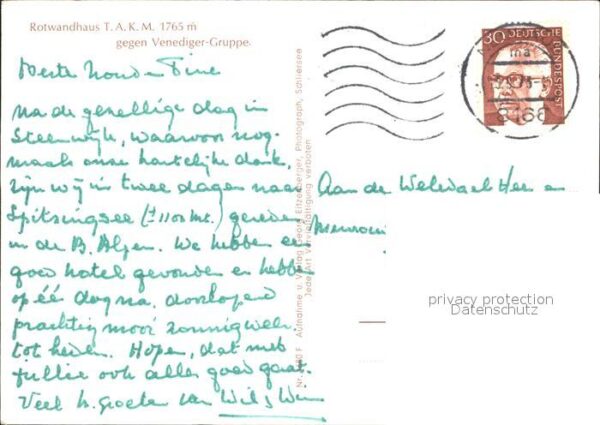 Rotwandhaus T. A. K. M. 1765 m
gegen Venediger-Gruppe.
Beste
na de gezellige dag in
Steenwijk, waarvoor nog-
maals onze hartelijke dank,
zijn wij in twee dagen naar
Spitzingsee (± 1100 mt.) gereden
in de B. Alpen. We hebben een
goed hotel gevonden en hebben
op éé dag na, doorlopend
prachtig mooi zonnig weer.
tot heden. Hopen, dat met
jullie ook alles goed gaat.
Veel h. groeten van Wil & Wim
Nr. F Aufnahme u. Verlag Georg Eitzenberger, Photograph, Schliersee
Jede Art Vervielfältigung verboten
30 DEUTSCHE BUNDESPOST
8166
Aan de Weledael Heer en
Mevrouw
privacy protection
Datenschutz